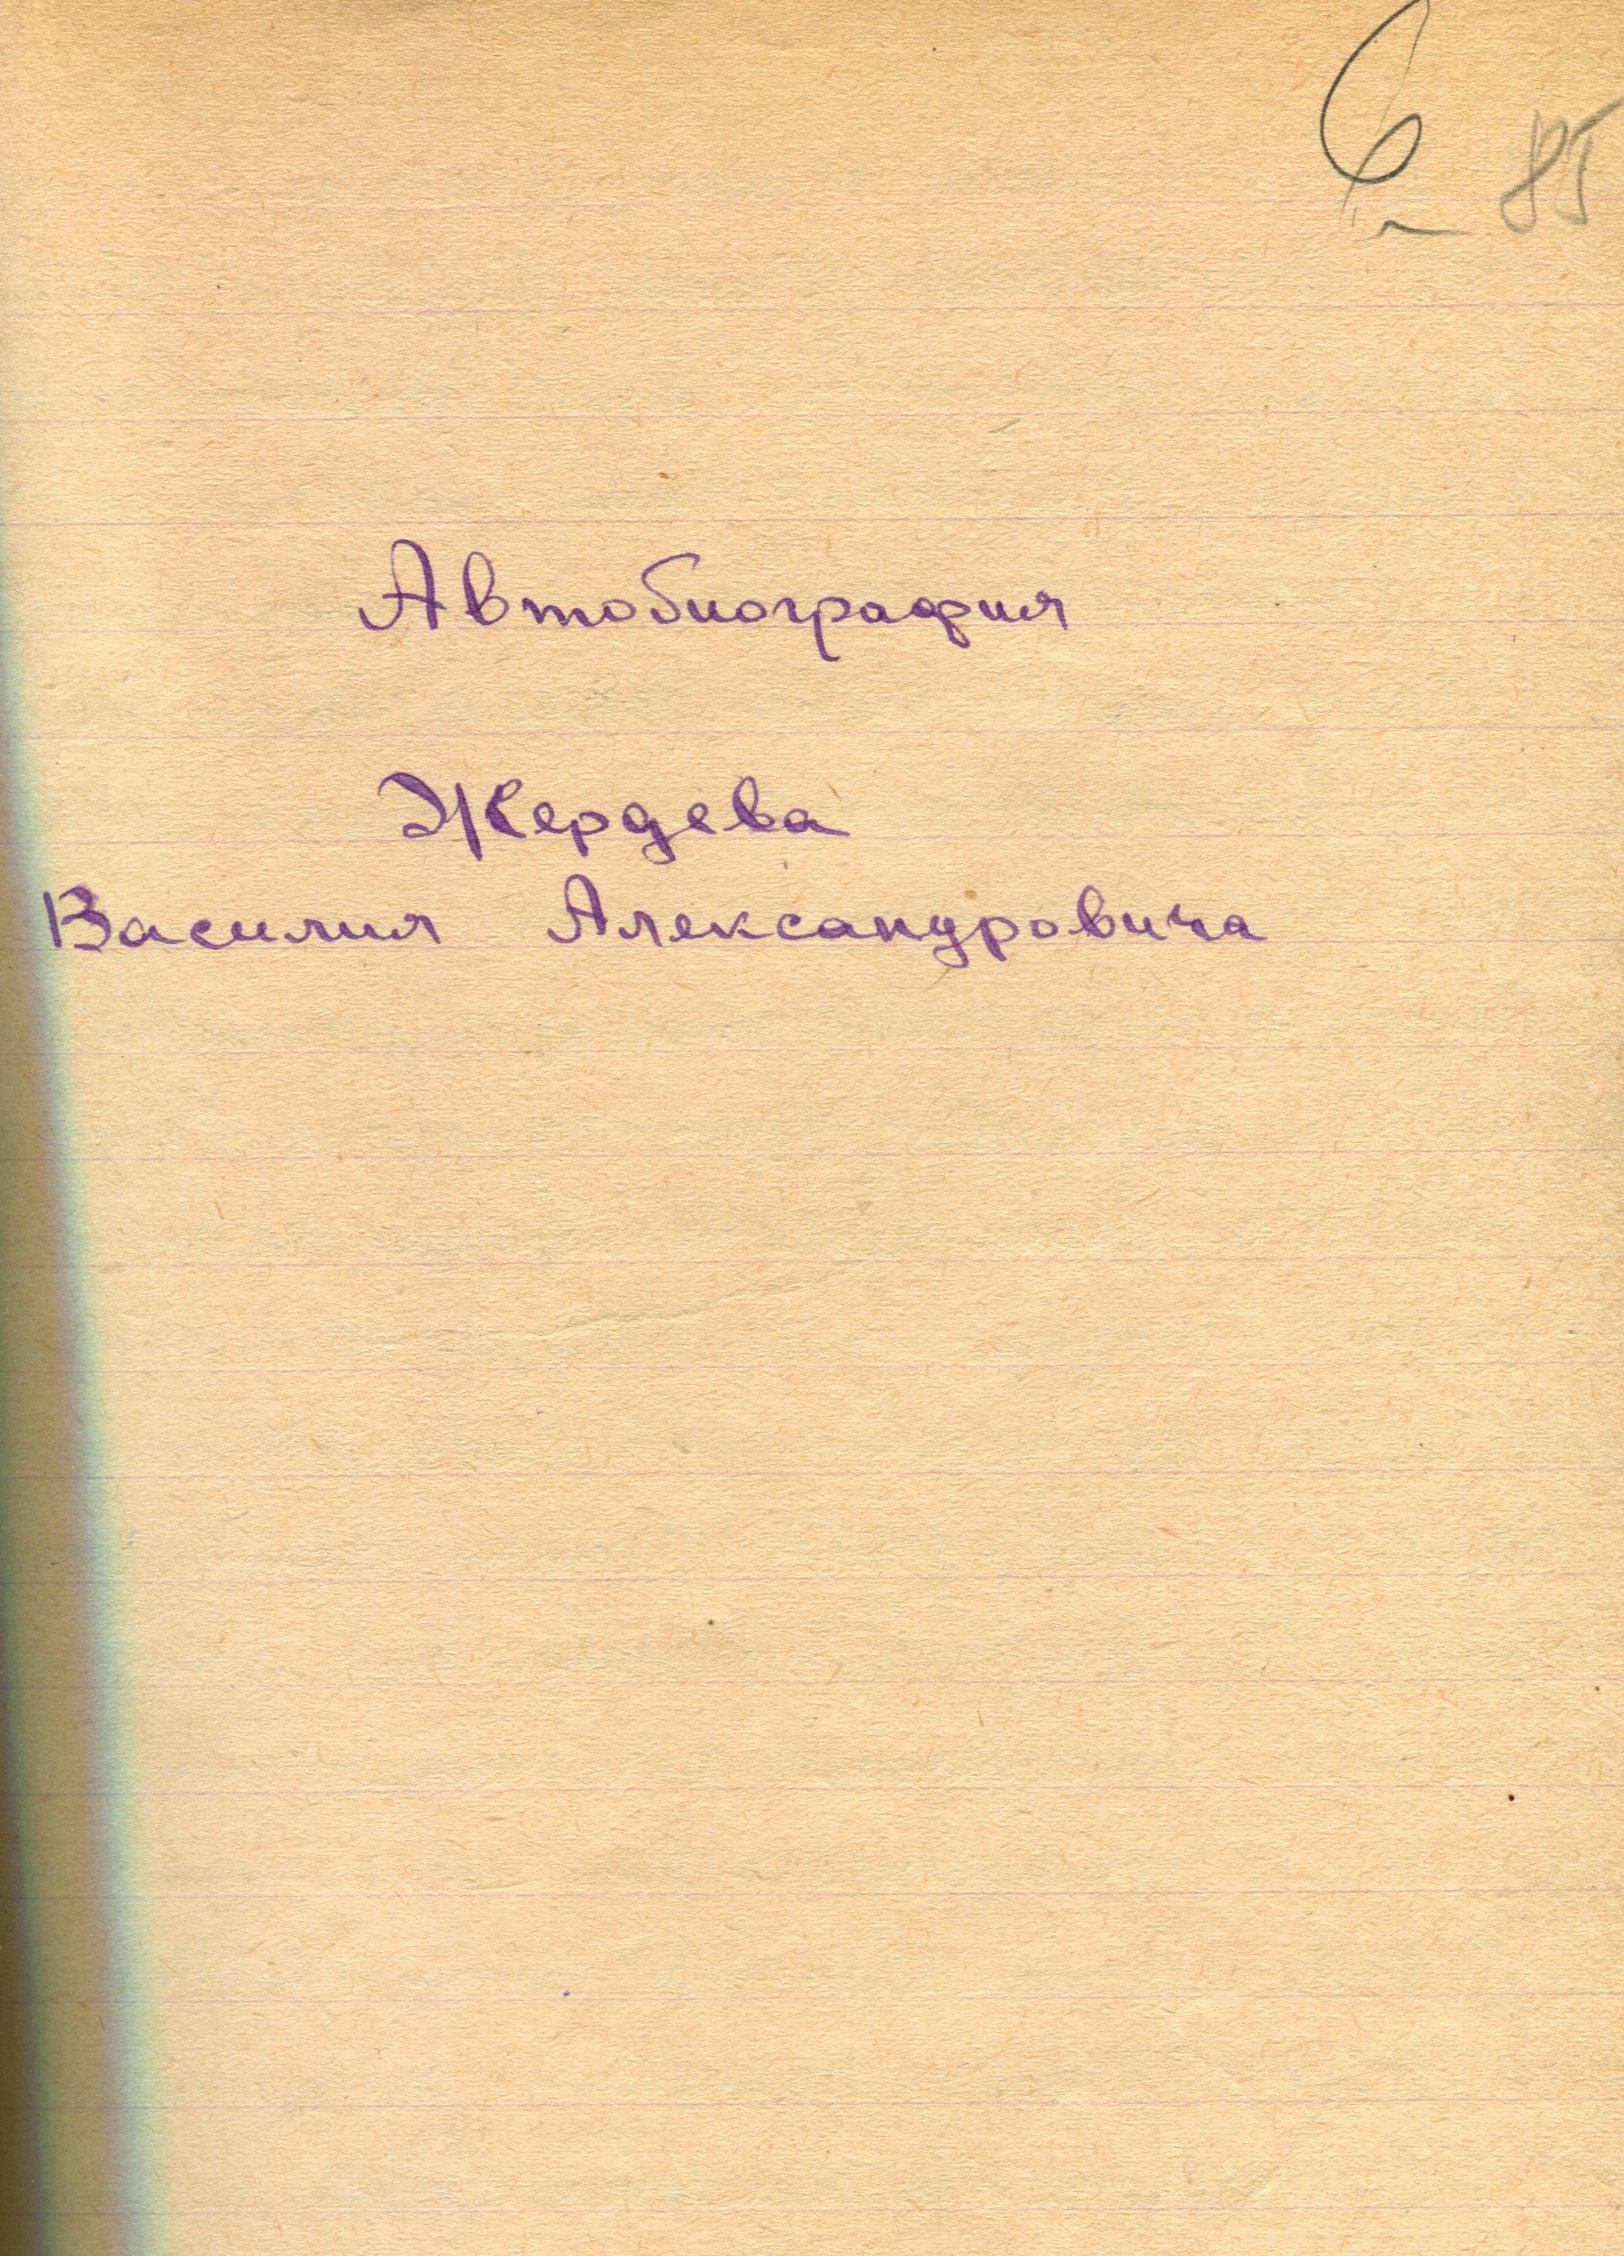 6 85
Автобиография
Жердева
Василия Александровича